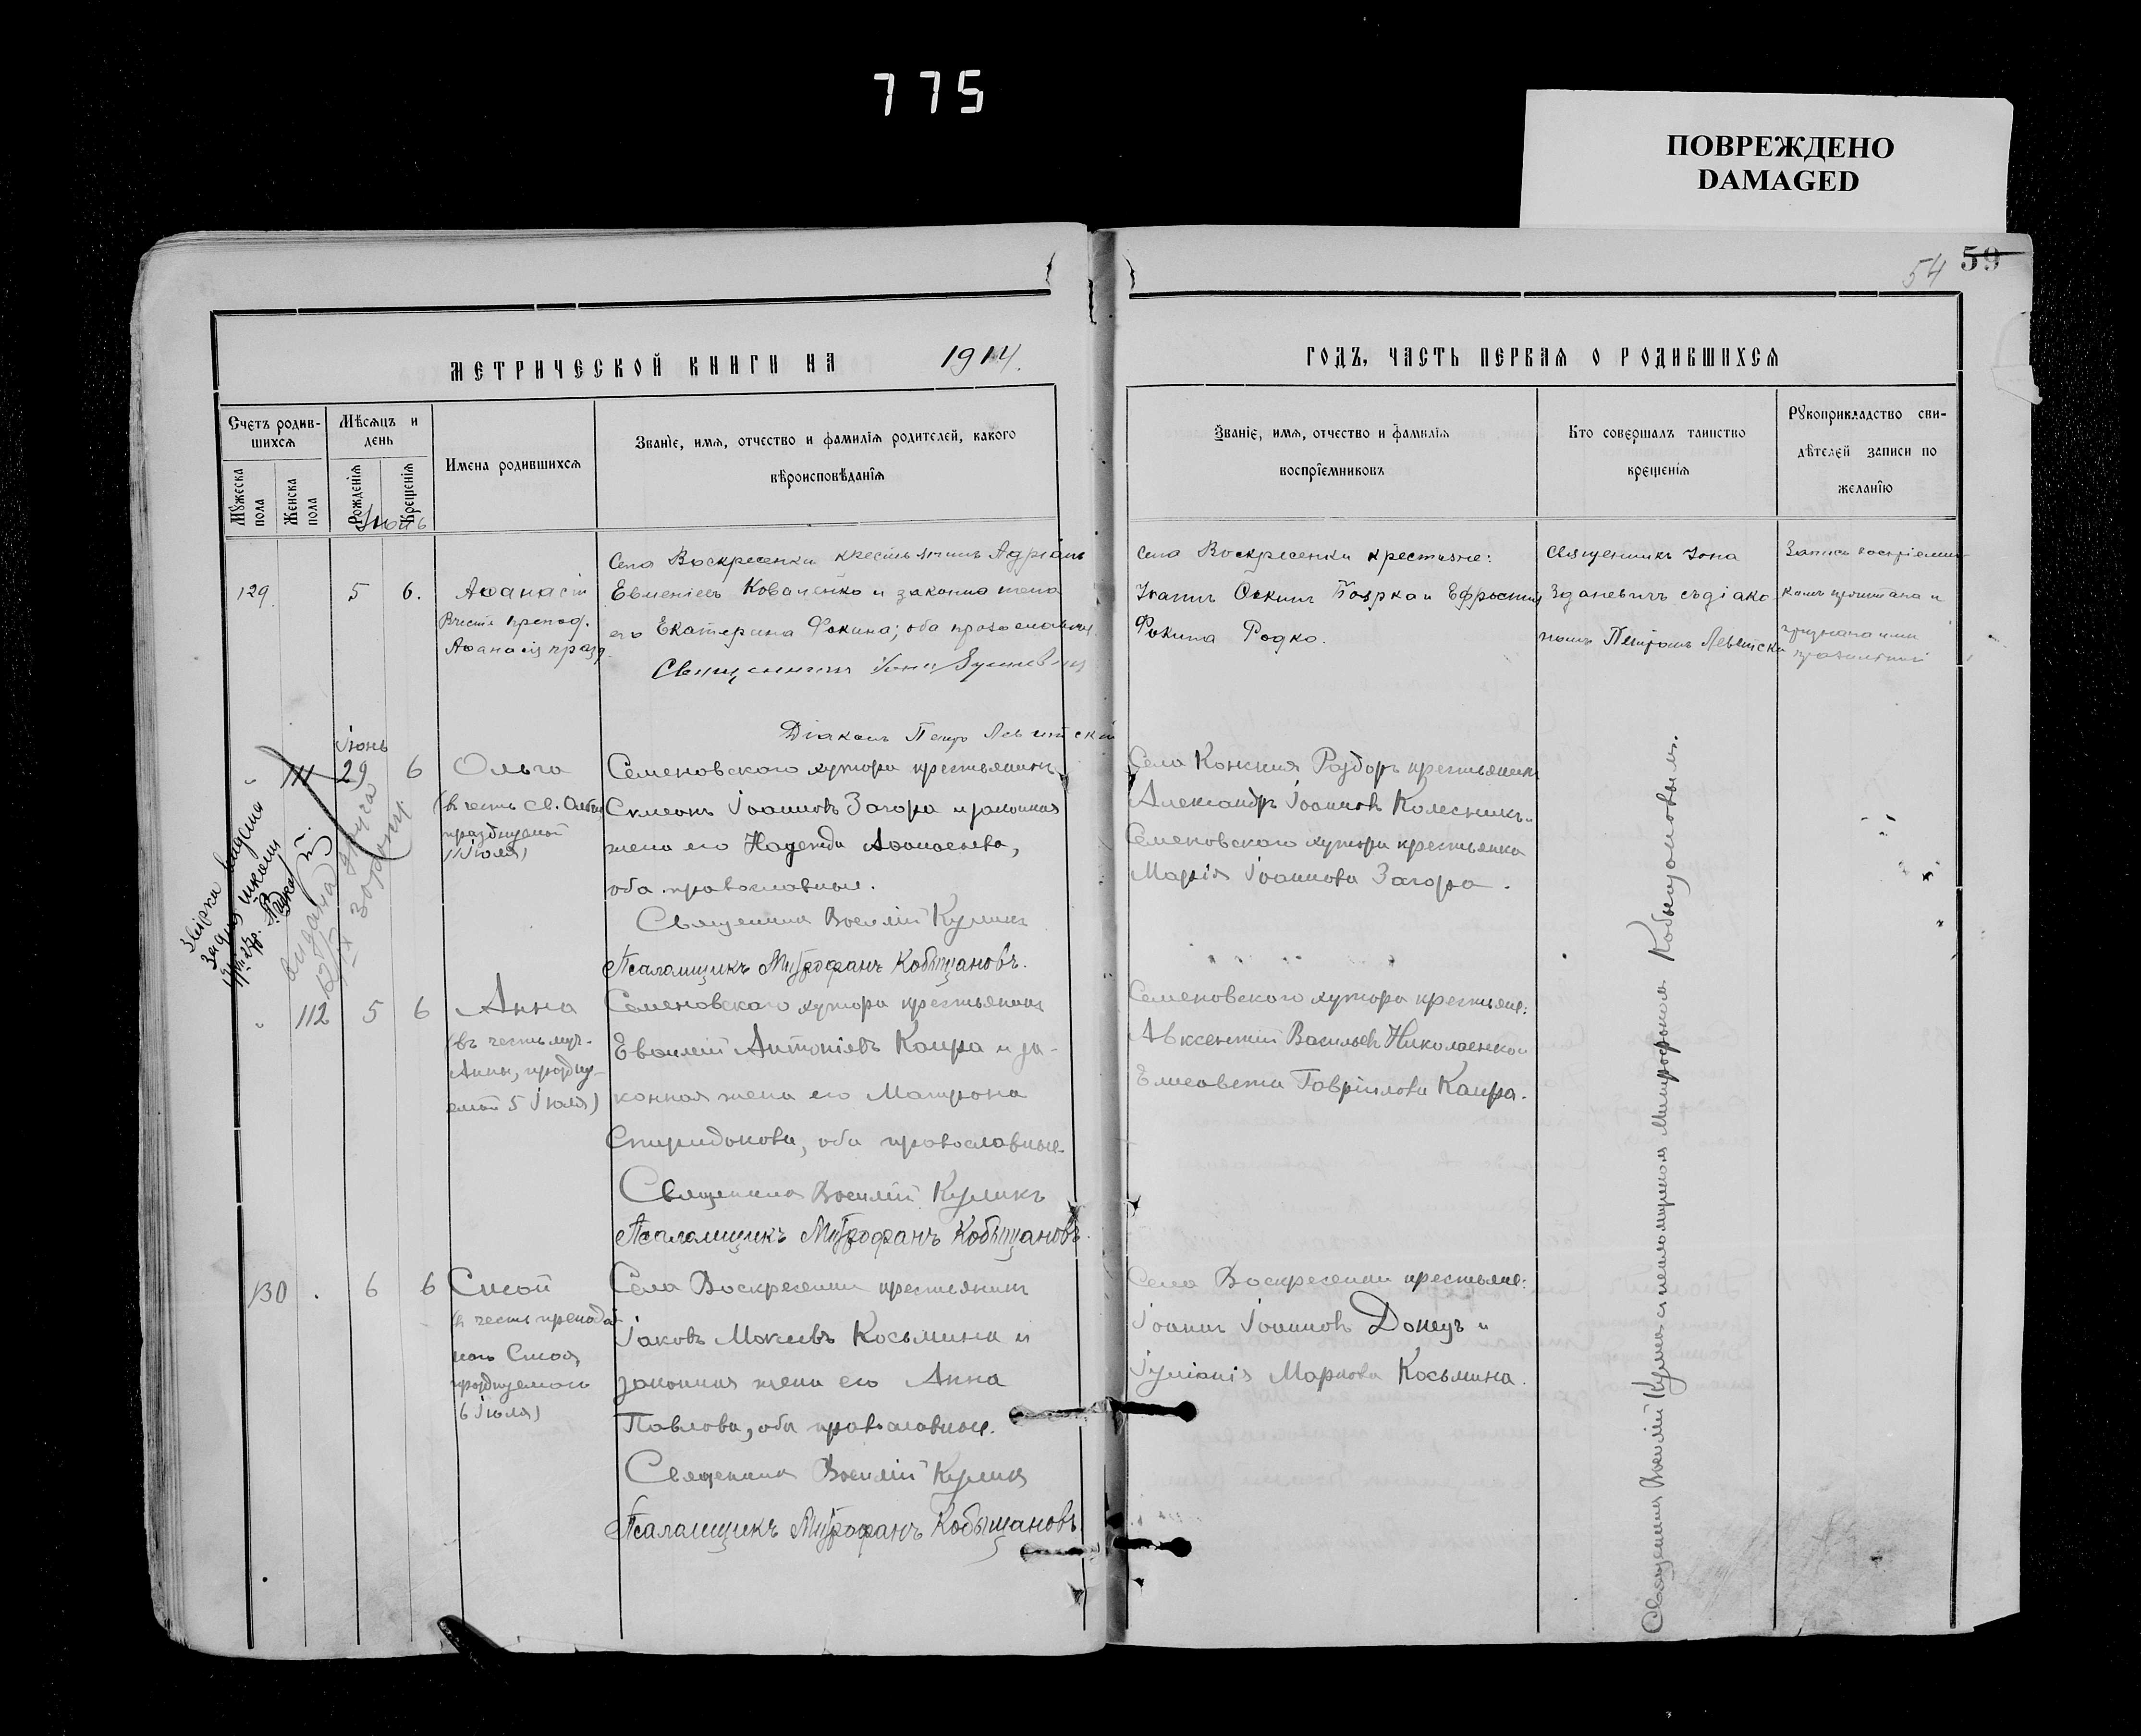 775
ПОВРЕЖДЕНО
DAMAGED
54 59
МЕТРИЧЕСКОЙ КНИГИ НА 1914.
ГОДЪ, ЧАСТЬ ПЕРВАЯ О РОДИВШИХСЯ
Счетъ родив-
шихся
Мужеска пола
Женска пола
Мѣсяцъ и
день
Рожденія
Крещенія
Имена родившихся
Званіе, имя, отчество и фамилія родителей, какого
вѣроисповѣданія
Званіе, имя, отчество и фамилія
воспріемниковъ
Кто совершалъ таинство
крещенія
Рукоприкладство сви-
дѣтелей записи по
желанію
129 5 6. Аѳанасій
Въ честь препод.
Аѳанасія празд.
Села Воскресенки крестьянинъ Адріанъ
Евменіевъ Коваченко и законна жена
его Екатерина Фокина; оба православны
Священникъ Іона Зданевичъ
Діаконъ Петръ Левитскій
Села Воскресенки крестьяне:
Іоаннъ Фокинъ Боярко и Ефросинія
Фокина Родко.
Священникъ Іона
Зданевичъ съ діако
номъ Петромъ Левитски
Запись воспріемни
камъ прочитана и
признана ими
правильной
Іюнь
111 29 6 Ольга
(въ честь св. Ольги
празднуемой
11 Іюля)
Семеновского хутора крестьянинъ
Симеонъ Іоанновъ Загора и законная
жена его Надежда Аѳанасьева,
оба православные.
Священникъ Василій Куликъ
Псаломщикъ Митрофанъ Кобыщановъ.
Села Конскія Раздоръ крестьянинъ
Александръ Іоанновъ Колесникъ и
Семеновского хутора крестьянка
Марія Іоаннова Загора.
видана друга
112 5 6 Анна
(въ честь муч.
Анны, праздну-
емой 5 Іюля)
Семеновского хутора крестьянинъ
Евѳимій Антоніевъ Каира и за-
конная жена его Матрона
Спиридонова, оба православные.
Священникъ Василій Куликъ
Псаломщикъ Митрофанъ Кобыщановъ.
Семеновского хутора крестьяне:
Авксентій Васильевъ Николаенко и
Елисавета Гавріилова Каира.
130 6 6 Сисой
(въ честь преподоб
наго Сисоя,
празднуемаго
6 Іюля)
Села Воскресенки крестьянинъ
Іаковъ Мокіевъ Косьмина и
законная жена его Анна
Павлова, оба православные.
Священникъ Василій Куликъ
Псаломщикъ Митрофанъ Кобыщановъ
Села Воскресенки крестьяне:
Іоаннъ Іоанновъ Донецъ и
Іуліанія Маркова Косьмина.
Священникъ Василій Куликъ с псаломщикомъ Митрофаномъ Кобыщановымъ.